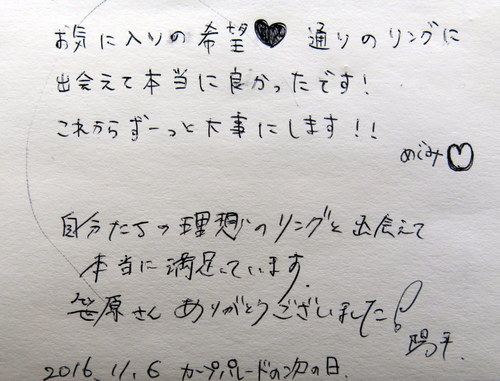 お気に入りの希望♥ 通りのリングに
出会えて本当に良かったです!
これからずーっと大事にします!!
めぐみ♡
自分たちの理想のリングと出会えて
本当に満足しています.
笹原さん ありがとうございました!
陽平.
2016.11.6 カープパレードの次の日.